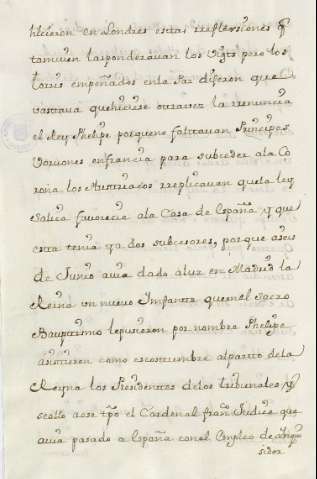 hicieron en Londres estas rreflexsiones q̃
tamuien lasponderauan los Vigts pero los
Torris empeñados enla Paz dijeron que
vastaua quehiciese otraues la rrenuncia
el Rey Phelipe porqueno faltauan Principes
Voruones enfrancia para subceder ala Co
rona los Austriacos rreplicauan quela ley
Salica fauorecia ala Casa de España y que
esta tenia ya dos subcesores, porque aseis
de Junio auia dado aluz en Madrid la
Reina vn nueuo Imfante quenel sacro
Bauptismo lepusieron por nombre Phelipe
asistieron como escostumbre alparto dela
Reyna los Presidentes delos tribunales y
sehallo aese tpõ el Cardenal fran Judice que
auia pasado a España conel Empleo de Inqui
sidor